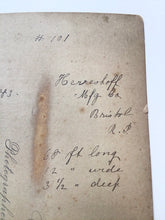 # 101
Herreshoff
Mfg Co
Bristol
R.I
68 ft long
12 " wide
3 1/2 " deep
Photographe